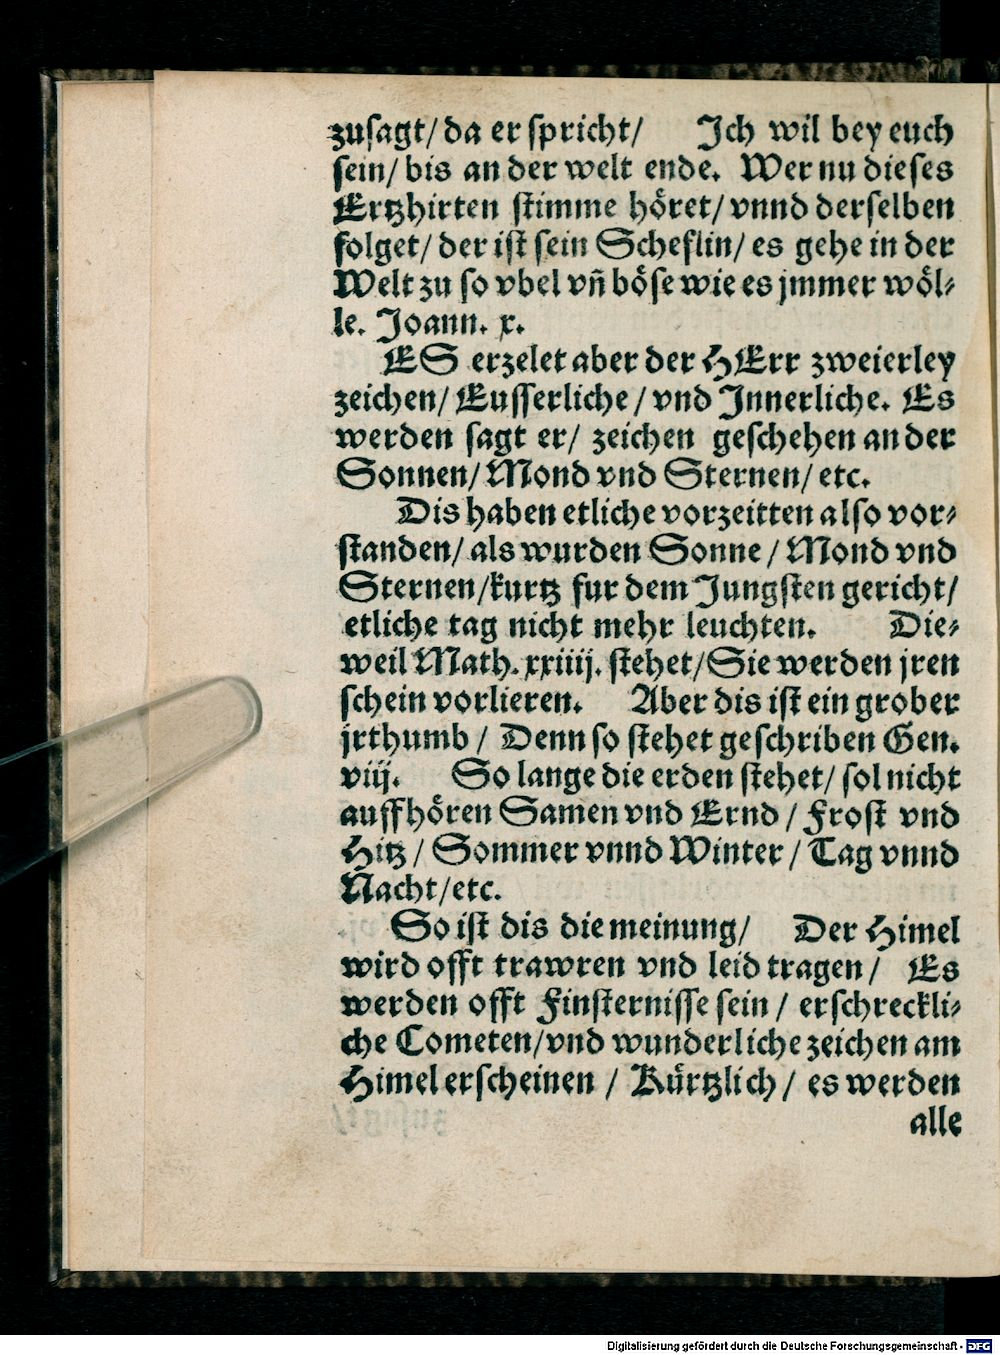 zusagt/ da er spricht/ Ich wil bey euch
sein/ bis an der welt ende. Wer nu dieses
Ertzhirten stimme höret/ vnnd derselben
folget/ der ist sein Scheflin/ es gehe in der
Welt zu so vbel vñ böse wie es jmmer wöl-
le. Joann. x.
ES erzelet aber der HErr zweierley
zeichen/ Eusserliche / vnd Innerliche. Es
werden sagt er/ zeichen geschehen an der
Sonnen/ Mond vnd Sternen/ etc.
Dis haben etliche vorzeitten also vor-
standen/ als wurden Sonne / Mond vnd
Sternen/kurtz fur dem Jungsten gericht/
etliche tag nicht mehr leuchten. Die-
weil Math. xxiiij. stehet/Sie werden jren
schein vorlieren. Aber dis ist ein grober
jrthumb / Denn so stehet geschriben Gen.
viij. So lange die erden stehet/ sol nicht
auffhören Samen vnd Ernd / Frost vnd
Hitz / Sommer vnnd Winter / Tag vnnd
Nacht/etc.
So ist dis die meinung/ Der Himel
wird offt trawren vnd leid tragen / Es
werden offt Finsternisse sein / erschreckli-
che Cometen/vnd wunderliche zeichen am
Himel erscheinen / Kürtzlich / es werden
alle
Digitalisierung gefördert durch die Deutsche Forschungsgemeinschaft - DFG